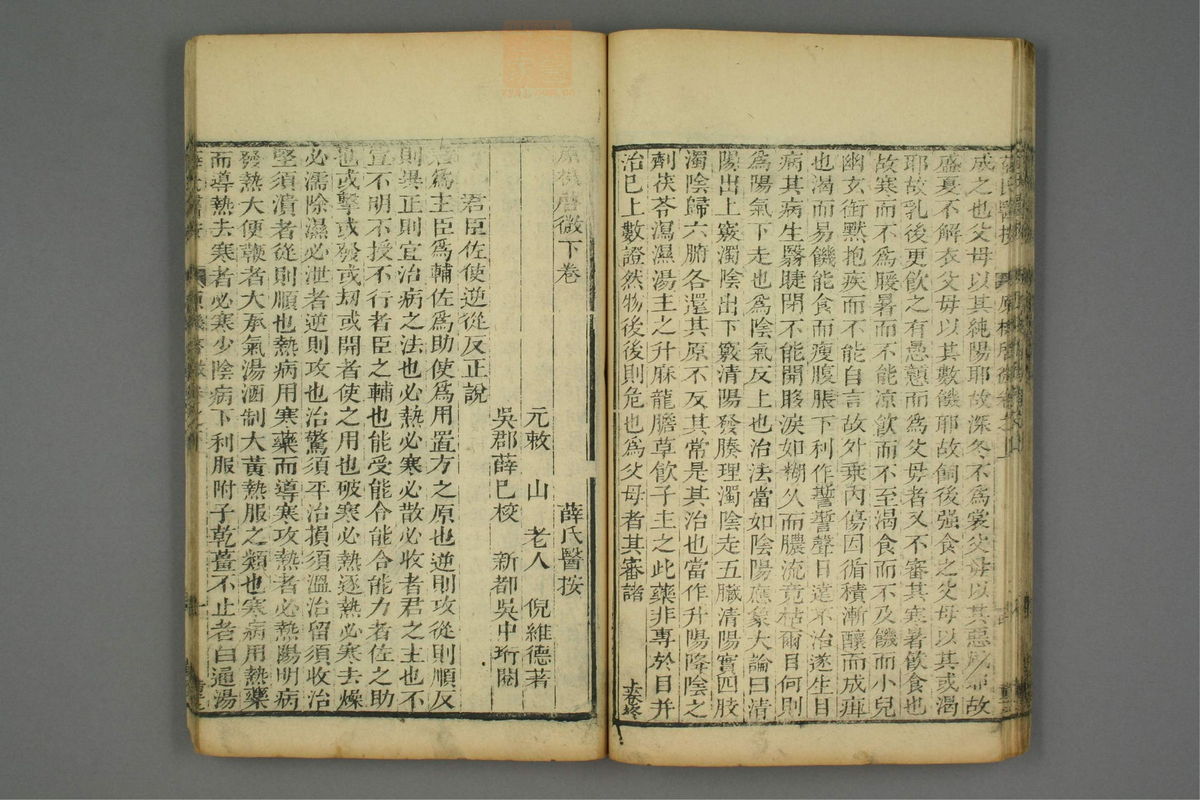 成之也父母以其純陽耶故深冬不爲裳父母以其惡風耶故
盛夏不解衣父母以其數饑耶故飼後强食之父母以其或渴
耶故乳後更飮之有愚戇而爲父母者又不審其寒暑飮食也
故寒而不爲暖暑而不能凉飮而不至渴食而不及饑而小兒
幽玄衘默抱疾而不能自言故外乘內傷因循積漸釀而成疳
也渴而易饑能食而瘦腹脹下利作䜌䜌聲日遠不治遂生目
病其病生翳睫閉不能開眵淚如糊久而膿流竟枯爾目何則
爲陽氣下走也爲陰氣反上也治法當如陰陽應象大論曰清
陽出上竅濁陰出下竅清陽發腠理濁陰走五臟清陽實四肢
濁陰歸六腑各還其原不反其常是其治也當作升陽降陰之
劑茯苓瀉濕湯主之升麻龍膽草飮子主之此藥非專於目并
治已上數證然物後後則危也爲父母者其審諸
上卷終
原機啓微下卷 薛氏醫按
元敕山老人 倪維德著
吳郡薛已校 新都吳中珩閱
君臣佐使逆從反正說
君爲主臣爲輔佐爲助使爲用置方之原也逆則攻從則順反
則異正則宜治病之法也必熱必寒必散必收者君之主也不
宣不明不授不行者臣之輔也能受能令能合能力者佐之助
也或擊或發或刼或開者使之用也破寒必熱逐熱必寒去燥
必濡除濕必泄者逆則攻也治驚須平治損須溫治留須收治
堅須潰者從則順也熱病用寒藥而導寒攻熱者必熱陽明病
發熱大便鞕者大承氣湯酒制大黃熱服之類也寒病用熱藥
而導熱去寒者必寒少陰病下利服附子乾薑不止者白通湯